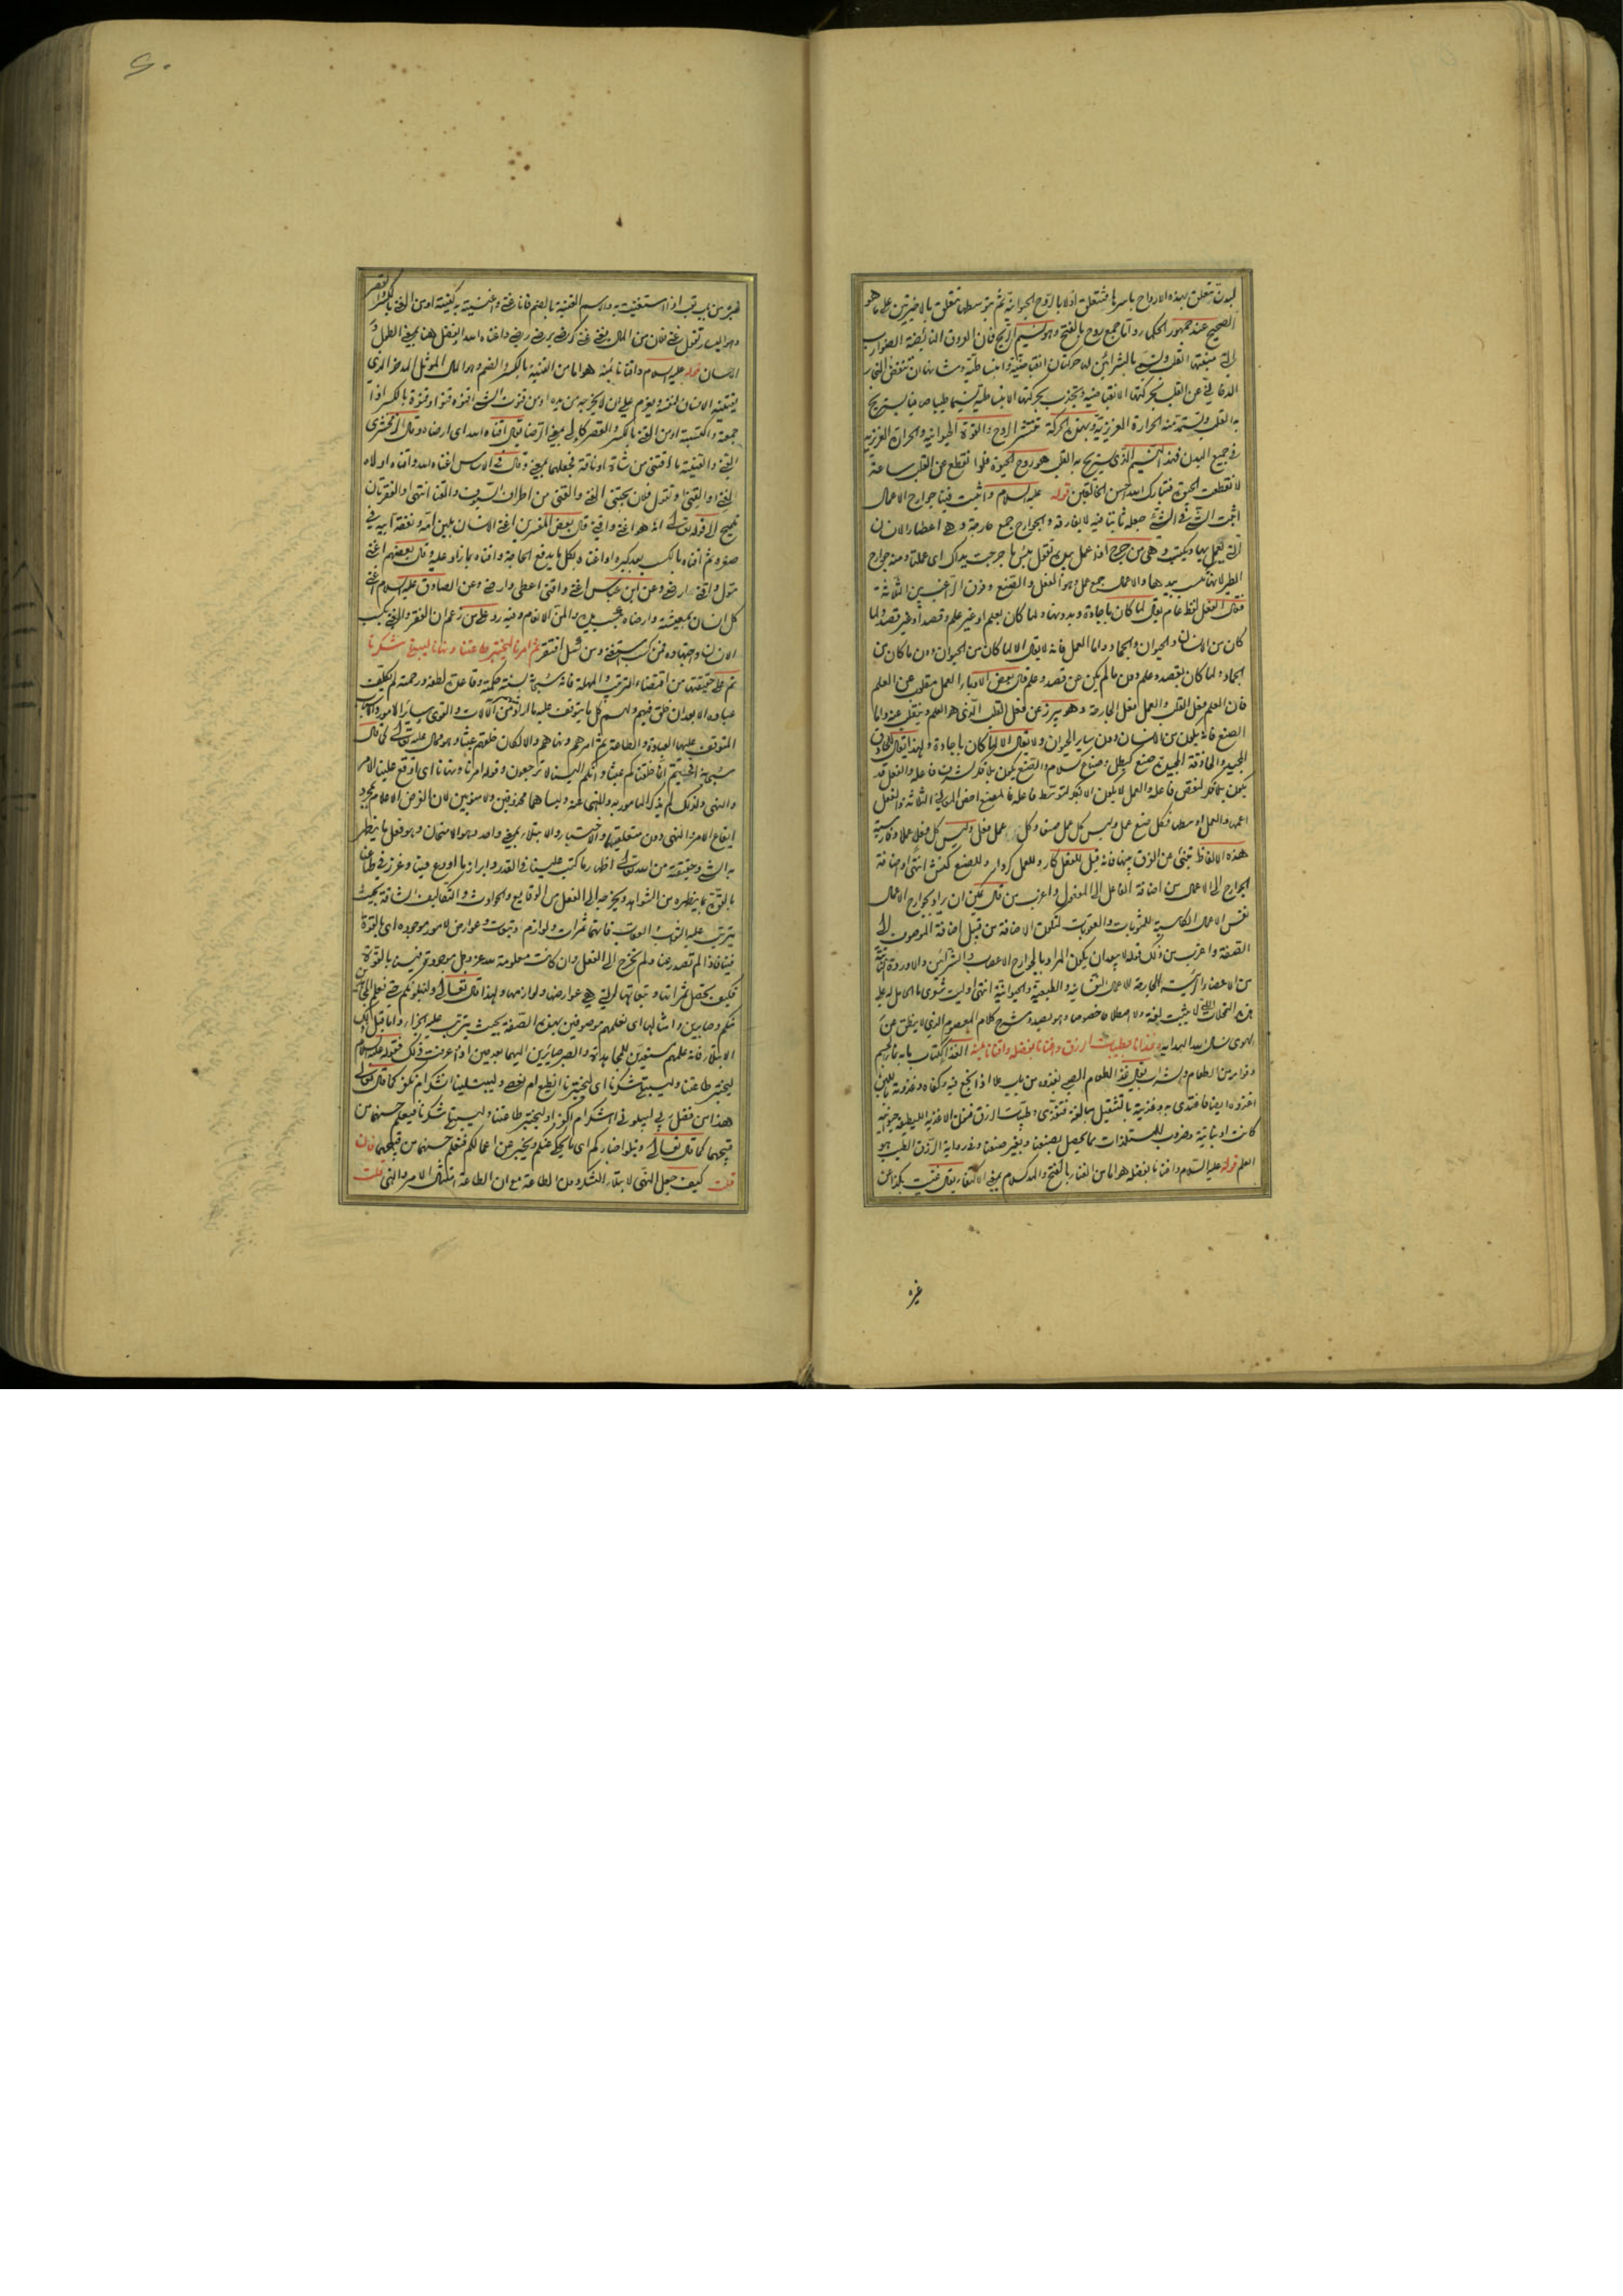 البدن تتعلق بهذه الارواح باسرها فتتعلق اولا بالروح الحيوانية ثم بتوسطها تتعلق بالاخيرتين على ما هو
الصحيح عند جمهور الحكماء واما جمع روح بالفتح وهو نسيم الريح فان العروق النابضة الضوارب
التي منبعها القلب وتسمى بالشرائين لها حركتان انقباضية وانبساطية وشانها ان تنفض البخار
الدخاني عن القلب بحركتها الانقباضية وتجذب بحركتها الانبساطية نسيما طيبا صافيا يستريح
به القلب ويستمد منه الحرارة الغريزية وبهذه الحركة تنتشر الروح والقوة الحيوانية والحرارة الغريزية
في جميع البدن فهذا النسيم الذي يستريح به القلب هو روح الحيوة فلو انقطع عن القلب ساعة
لانقطعت الحيوة فتبارك الله احسن الخالقين قوله عليه السلام واثبت فينا جوارح الاعمال
اثبت الشيء في الشيء جعله ثابتا فيه لا يفارقه والجوارح جمع جارحة وهي اعضاء الانسان
التي يعمل بها ويكتسب وهي من جرح اذا عمل بيده تقول بئس ما جرحت يداك اي عملتا ومنه جوارح
الطير لانها تكسب بيدها والاعمال جمع عمل وهو الفعل والصنع وفرق الراغب بين الثلاثة
فقال الفعل لفظ عام يقال لما كان باجادة وبدونها ولما كان بعلم او غير علم وقصد او غير قصد ولما
كان من الانسان والحيوان والجماد واما العمل فانه لا يقال الا لما كان من الحيوان دون ما كان من
الجماد ولما كان بقصد وعلم دون ما لم يكن عن قصد وعلم قال بعض الادباء العمل مقلوب عن العلم
فان العلم فعل القلب والعمل فعل الجارحة وهو يبرز عن فعل القلب الذي هو العلم وينقلب عنه واما
الصنع فانه يكون من الانسان دون سائر الحيوان ولا يقال الا لما كان باجادة ولهذا يقال للحاذق
المجيد والحاذقة المجيدة صنع كبطل وصناع كسلام والصنع يكون بلا فكر لشرف فاعله والفعل قد
يكون بلا فكر لنقص فاعله والعمل لا يكون الا بفكر لتوسط فاعله فالصنع اخص المعاني الثلاثة والفعل
اعمها والعمل اوسطها فكل صنع عمل وليس كل عمل صنعا وكل عمل فعل وليس كل فعل عملا وفارسية
هذه الالفاظ تنبئ عن الفرق بينها فانه قيل للفعل كار وللعمل كردار وللصنع كنش انتهى واضافة
الجوارح الى الاعمال من اضافة الفاعل الى المفعول واغرب من قال يمكن ان يراد بجوارح الاعمال
نفس الاعمال الكاسبة للمثوبات والعقوبات لتكون الاضافة من قبيل اضافة الموصوف الى
الصفة واغرب من ذلك قوله لا يبعدان يكون المراد بالجوارح الاعصاب والشرائين والاوردة الثابتة
من الاعضاء الرئيسة الخارجة للاعمال النفسانية والطبيعية والحيوانية انتهى وليت شعري ما الحامل له على
هذه التمحلات التي لا يثبت لغة ولا اصطلاحا خصوصا وهو بصدد شرح كلام المعصوم الذي لا ينطق عن
الهوى نسال الله الهداية وغذانا بطيبات الرزق واغنانا بفضله واقنانا بمنه الغذا ككتاب ما به نماء الجسم
وقوامه من الطعام والشراب يقال غذا الطعام الصبي يغذوه من باب علا اذا نجع فيه وكفاه وغذوته باللبن
اغذوه ايضا فاغتذى به وغذيته بالتثقيل مبالغة فتغذى وطيبات الرزق فنون الاغذية اللطيفة حيوانية
كانت او نباتية وضروب المستلذات مما يحصل بصنعنا وبغير صنعنا وفي رواية الرزق الطيب هو
العلم قوله عليه السلام واغنانا بفضله هو اما من الغناء بالفتح والمد كسلام بمعنى الاكتفاء يقال غنيت بكذا عن
غيره
غيره من باب تعب اذا استغنيت به والاسم الغنية بالضم فانا غني واغنيته به كفيته او من الغنى بالكسر والقصر
وهو اليسار تقول غني فلان من المال يغنى غنى كرضي يرضى رضى واغناه الله والفضل هنا بمعنى الطول و
الاحسان قوله عليه السلام واقنانا بمنه هو اما من القنية بالكسر والضم وهو المال المؤثل المدخر الذي
يقتنيه الانسان لنفسه ويعزم على ان لا يخرجه من يده او من قنوت الشيء اقنوه قنوا وقنوة بالكسر اذا
جمعته واكتسبته او من القنى بالكسر والقصر كالى بمعنى الرضا يقال اقناه الله اي ارضاه وقال الزمخشري
القنى والقنية ما اقتنى من شاة او ناقة فجعلهما بمعنى وقال في الاساس اغناه الله واقناه اولاه
الغنى والقنى وتقول فلان يجتني الغنى والقنى من اطراف السيوف والقنا انتهى والفقرتان
تلميح الى قوله تعالى انه هو اغنى واقنى قال بعض المفسرين اغنى الانسان بلبن امه ونفقة ابيه في
صغره ثم اقناه بالكسب بعد كبره او اغناه بكل ما يدفع الحاجة واقناه بما زاد عليه وقال بعضهم اغنى
مول واقنى ارضى وعن ابن عباس اغنى واقنى اعطى وارضى وعن الصادق عليه السلام اغنى
كل انسان بمعيشته وارضاه بكسب يده والمن الانعام وفيه رد على من زعم ان الفقر والغنى بكسب
الانسان واجتهاده فمن كسب استغنى ومن كسل افتقر ثم امرنا ليختبر طاعتنا ونهانا ليبتلي شكرنا
ثم على حقيقتها من اقتضاء الترتيب والمهلة فانه سبحانه بسنة حكمته وقاعدة لطفه ورحمته لم يكلف
عباده الا بعد ان خلق فيهم ولهم كل ما يتوقف عليه ما اراده من الآلات والقوى وسائر الامور والاسباب
المتوقف عليها العبادة والطاعة ثم امرهم ونهاهم والا لكان خلقهم عبثا وهو محال عليه تعالى كما قال
سبحانه افحسبتم انما خلقناكم عبثا وانكم الينا لا ترجعون وقوله امرنا ونهانا اي اوقع علينا الامر
والنهي ولذلك لم يذكر المامور به والمنهي عنه وليسا هما محذوفين ولا منويين لان الغرض الاعلام بمجرد
ايقاع الامر والنهي دون متعلقهما والاختبار والابتلاء بمعنى واحد وهو الامتحان وهو فعل ما يظهر
به الشيء وحقيقته من الله تعالى اظهار ما كتب علينا في القدر وابراز ما اودع فينا وغرز في طباعنا
بالقوة بما يظهره من الشواهد ويخرجه الى الفعل من الوقايع والحوادث والتكاليف الشاقة بحيث
يترتب عليه الثواب والعقاب فانهما ثمرات ولوازم وتبعات وعوارض لامور موجودة اي بالقوة
فينا فاذا لم تصدر عنا ولم تخرج الى الفعل وان كانت معلومة لله عز وجل موجودة فينا بالقوة
فكيف يحصل ثمراتها وتبعاتها التي هي عوارضها ولوازمها ولهذا قال تعالى ولنبلونكم حتى نعلم المجاهدين
منكم والصابرين وامثالها اي نعلمهم موصوفين بهذه الصفة بحيث يترتب عليها الجزاء واما قبل ذلك
الابتلاء فانه علمهم مستعدين للمجاهدة والصبر صائرين اليهما بعد حين اذا عرفت ذلك فقوله عليه السلام
ليختبر طاعتنا وليبتلي شكرنا اي ليختبرنا انطيع ام نعصي وليبتلينا انشكر ام نكفر كما قال تعالى
هذا من فضل ربي ليبلوني ءاشكر ام اكفر او ليختبر طاعتنا وليبتلي شكرنا فيعلم حسنهما من
قبيحهما كما قال تعالى ونبلوا اخباركم اي ما يحكى عنكم ويخبر عن اعمالكم فنعلم حسنها من قبيحها فان
قلت كيف جعل النهي لابتلاء الشكر دون الطاعة مع ان الطاعة امتثال الامر والنهي قلت